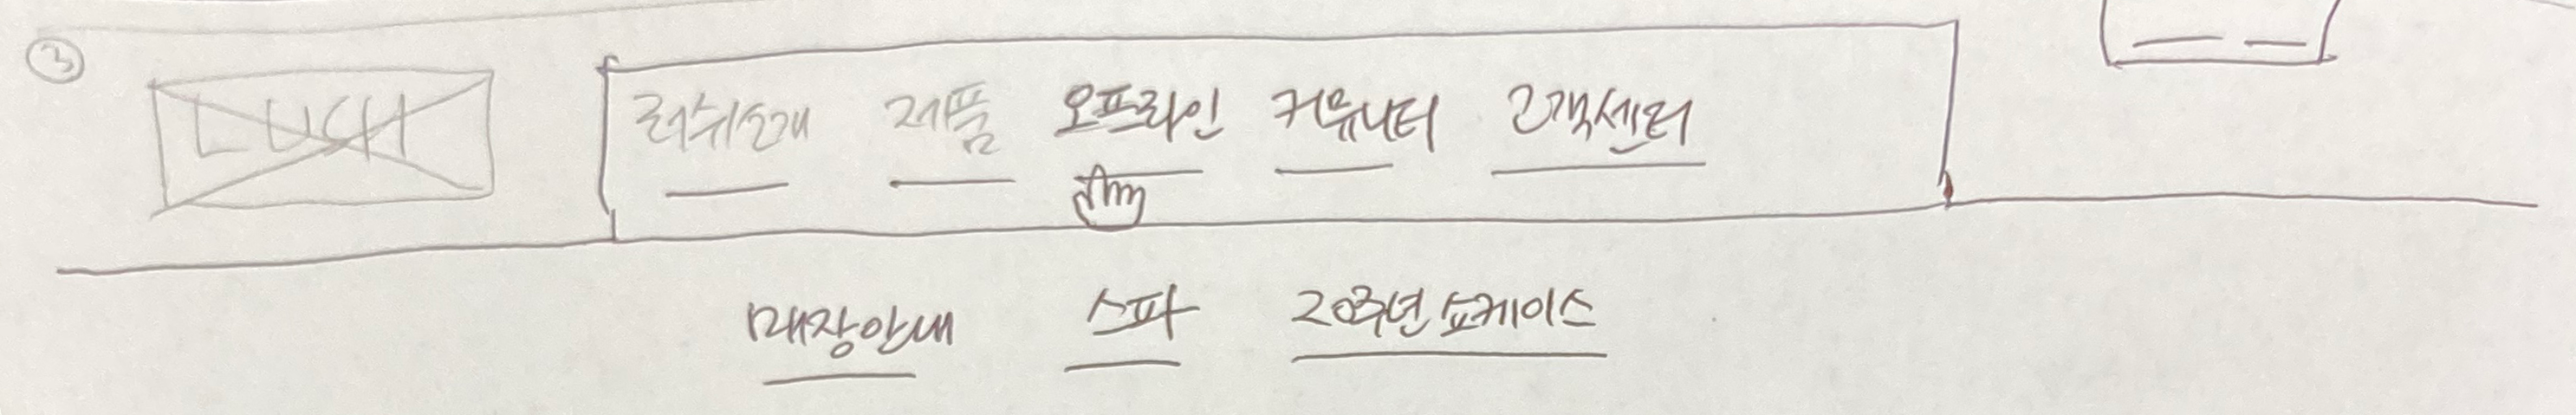 ③
LUSH 러쉬소개 제품 오프라인 커뮤니티 고객센터
매장안내 스파 20주년 쇼케이스